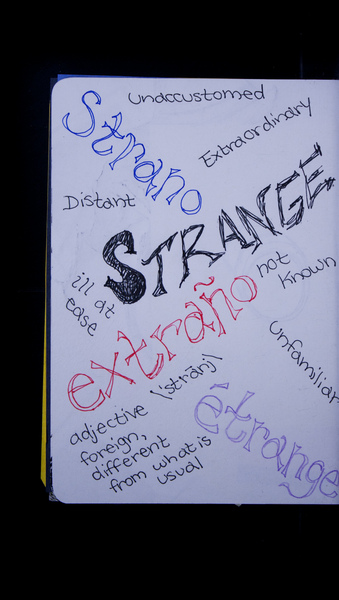 unaccustomed
Strano
Extraordinary
Distant
STRANGE
not
known
ill at
ease
extraño
unfamiliar
\'strānj\
étrange
adjective
foreign,
different
from what is
usual